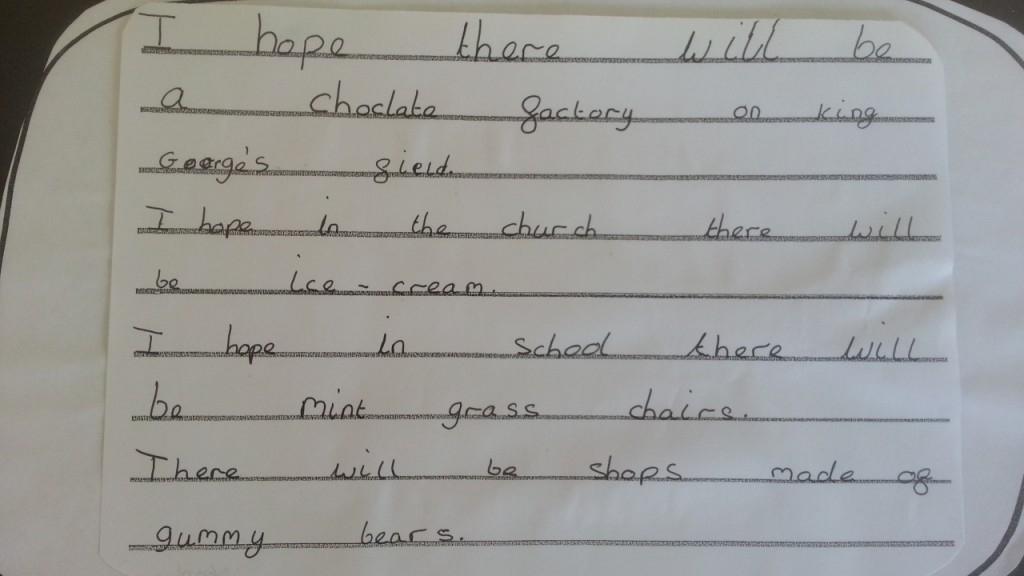 I hope there will be
a choclate factory on king
George's field.
I hope in the church there will
be ice-cream.
I hope in school there will
be mint grass chairs.
There will be shops made of
gummy bears.